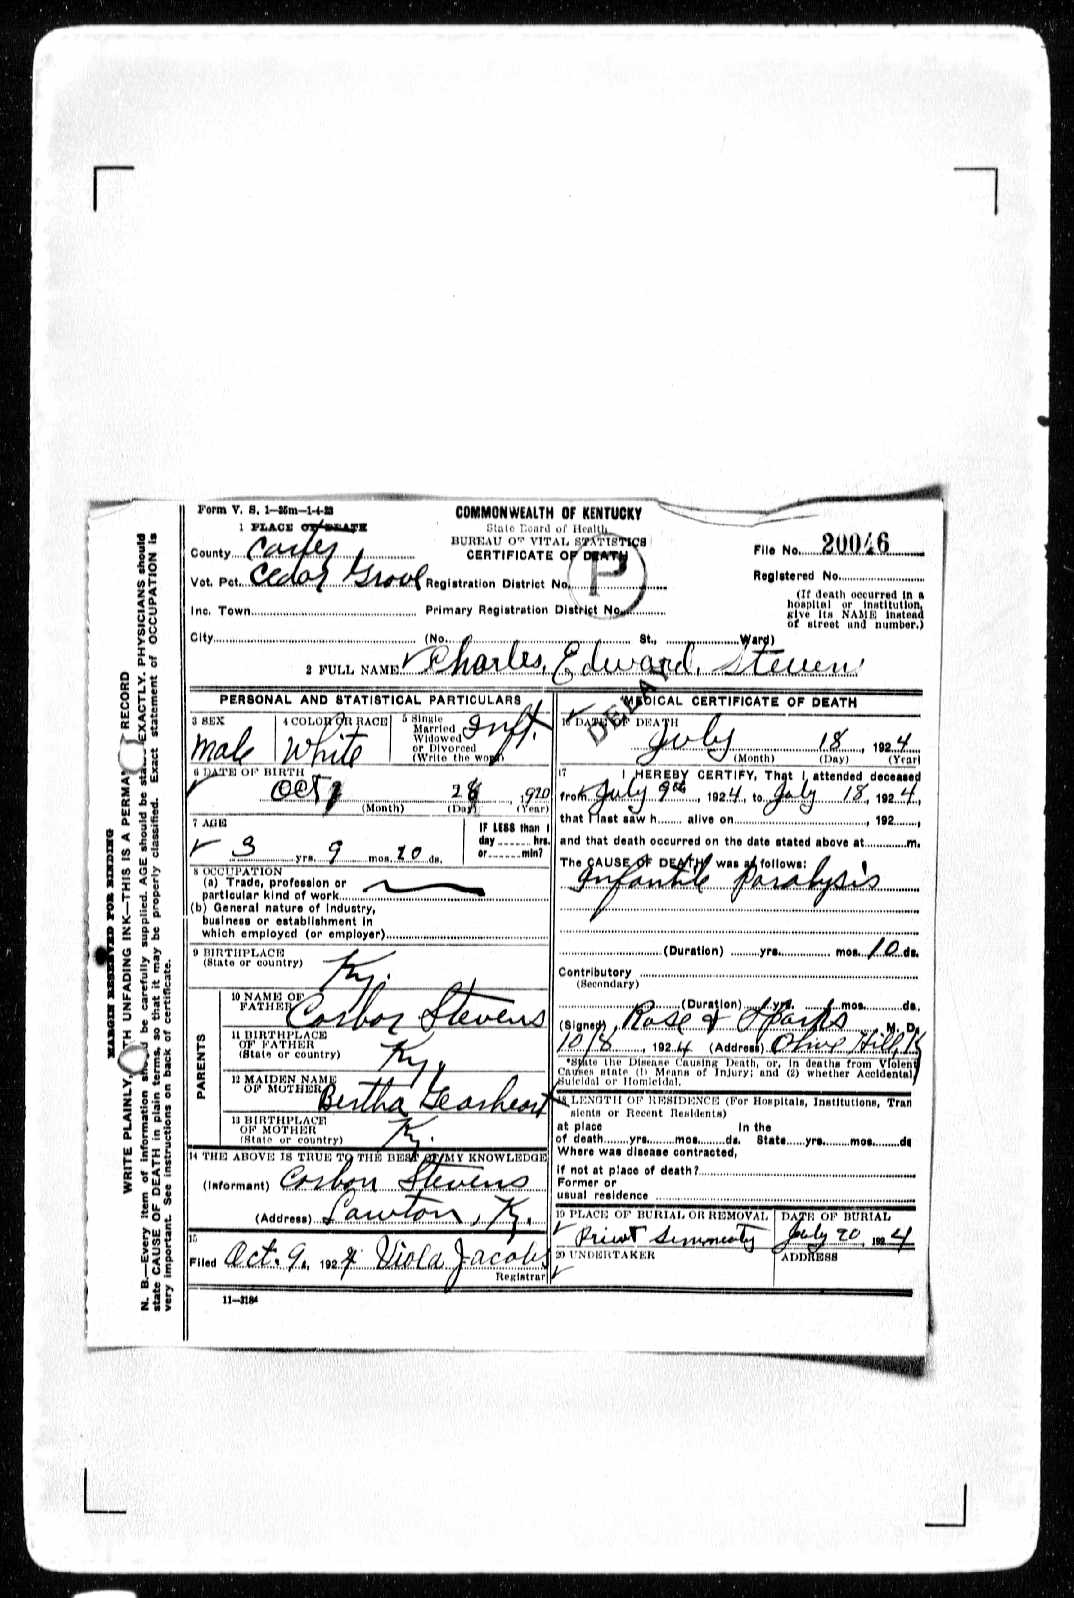 Form V. S. 1—25m—1-4-23
COMMONWEALTH OF KENTUCKY
State Board of Health
BUREAU OF VITAL STATISTICS
CERTIFICATE OF DEATH
1 PLACE OF DEATH
County Carter
Vot. Pct. Cedar Grove
Registration District No.
File No. 20046
Registered No.
Inc. Town
Primary Registration District No.
(If death occurred in a
hospital or institution,
give its NAME instead
of street and number.)
P
City (No. St., Ward)
2 FULL NAME Charles Edward Stevens
DELAY
PERSONAL AND STATISTICAL PARTICULARS
3 SEX
Male
4 COLOR OR RACE
White
5 Single
Married
Widowed
or Divorced
(Write the word)
Inft.
6 DATE OF BIRTH
Oct 28 1920
(Month) (Day) (Year)
7 AGE
3 yrs. 9 mos. 20 ds.
IF LESS than 1
day hrs.
or min?
8 OCCUPATION
(a) Trade, profession or
particular kind of work
(b) General nature of industry,
business or establishment in
which employed (or employer)
9 BIRTHPLACE
(State or country)
Ky.
PARENTS
10 NAME OF
FATHER
Corbon Stevens
11 BIRTHPLACE
OF FATHER
(State or country)
Ky.
12 MAIDEN NAME
OF MOTHER
Bertha Gearheart
13 BIRTHPLACE
OF MOTHER
(State or country)
Ky.
14 THE ABOVE IS TRUE TO THE BEST OF MY KNOWLEDGE
(Informant) Corbon Stevens
(Address) Lawton, Ky.
15
Filed Oct. 9, 1924 Viola Jacobs
Registrar
11—3184
MEDICAL CERTIFICATE OF DEATH
16 DATE OF DEATH
July 18, 1924
(Month) (Day) (Year)
17 I HEREBY CERTIFY, That I attended deceased
from July 9th, 1924, to July 18, 1924,
that I last saw h alive on , 192 ,
and that death occurred on the date stated above at m.
The CAUSE OF DEATH was as follows:
Infantile Paralysis
(Duration) yrs. mos. 10 ds.
Contributory
(Secondary)
(Duration) yrs. mos. ds.
(Signed) Rose & Sparks M. D.
10/8, 1924 (Address) Olive Hill, K
*State the Disease Causing Death, or, in deaths from Violent
Causes state (1) Means of Injury; and (2) whether Accidental,
Suicidal or Homicidal.
18 LENGTH OF RESIDENCE (For Hospitals, Institutions, Tran
sients or Recent Residents)
at place In the
of death yrs. mos. ds. State yrs. mos. ds
Where was disease contracted,
if not at place of death?
Former or
usual residence
19 PLACE OF BURIAL OR REMOVAL
DATE OF BURIAL
July 20, 1924
20 UNDERTAKER
ADDRESS
MARGIN RESERVED FOR BINDING
WRITE PLAINLY, WITH UNFADING INK—THIS IS A PERMANENT RECORD
N. B.—Every item of information should be carefully supplied. AGE should be stated EXACTLY. PHYSICIANS should
state CAUSE OF DEATH in plain terms, so that it may be properly classified. Exact statement of OCCUPATION is
very important. See instructions on back of certificate.